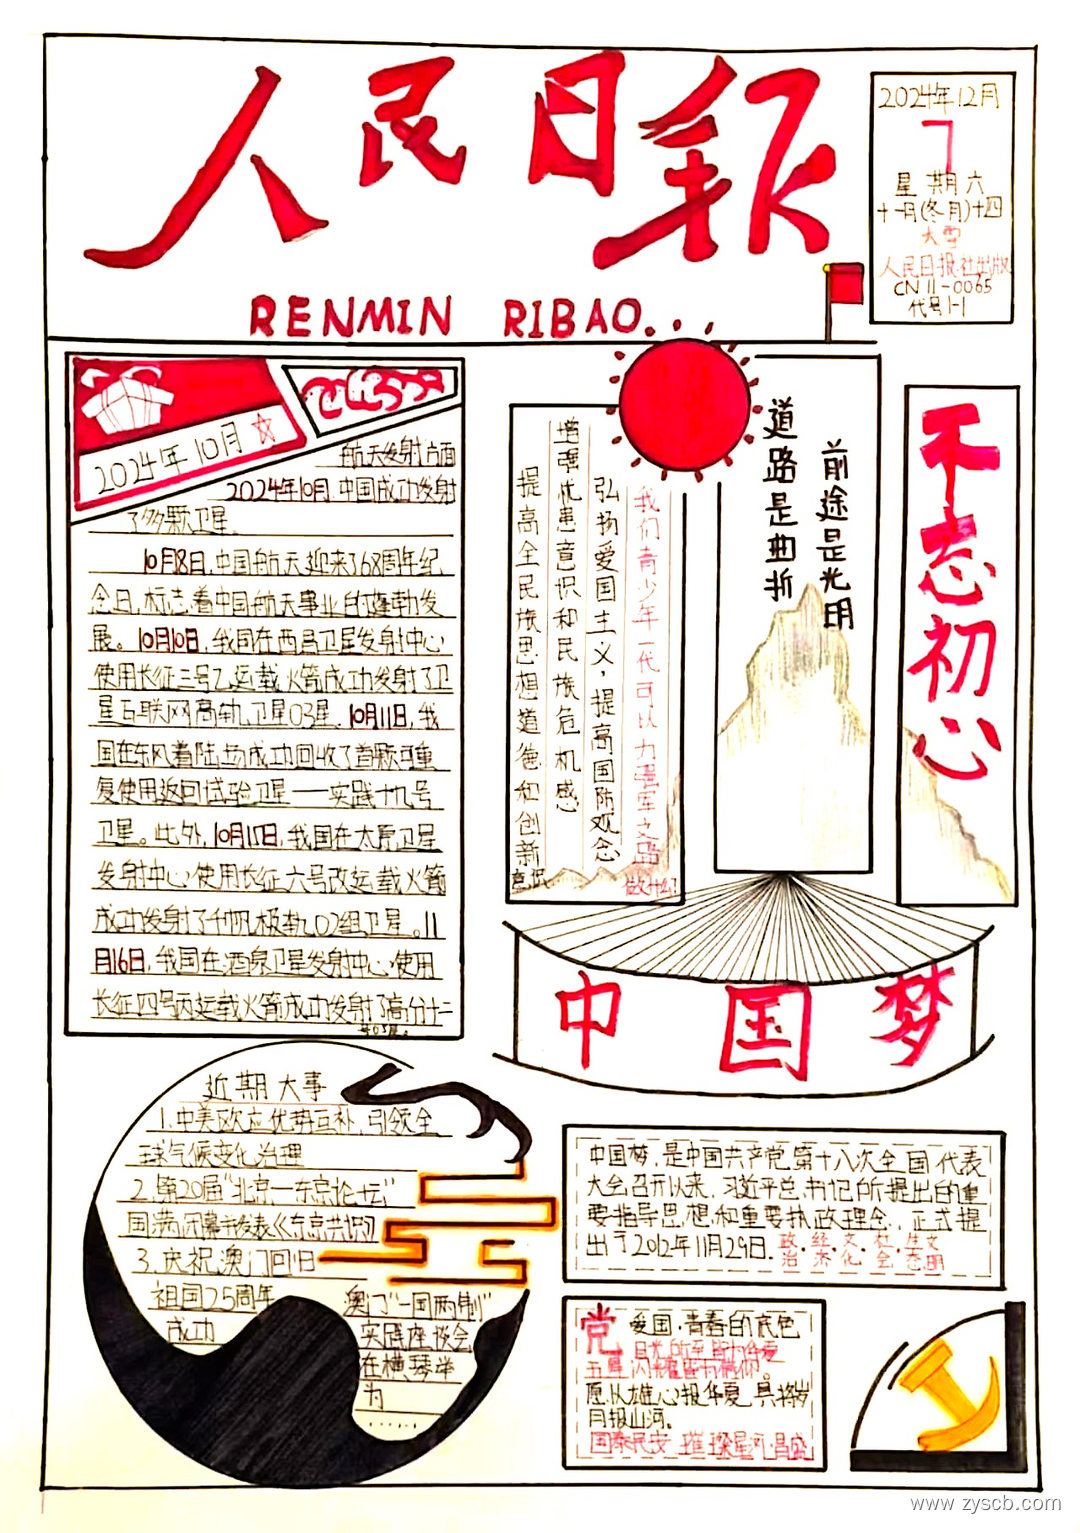 人民日報
RENMIN RIBAO...
2024年12月
7
星期六
十一月(冬月)十四
大雪
人民日报社出版
CN 11-0065
代号1-1
2024年10月
航天发射方面
2024年10月,中国成功发射
了多颗卫星
10月8日,中国航天迎来了68周年纪
念日,标志着中国航天事业的蓬勃发
展。10月10日,我国在西昌卫星发射中心
使用长征三号乙运载火箭成功发射了卫
星互联网高轨卫星03星.10月11日,我
国在东风着陆场成功回收了首颗可重
复使用返回试验卫星——实践十九号
卫星。此外,10月15日,我国在太原卫星
发射中心使用长征六号改运载火箭
成功发射了千帆极轨02组卫星。11
月16日,我国在酒泉卫星发射中心使用
长征四号丙运载火箭成功发射了高分十二
号05星。
道路是曲折
前途是光明
我们青少年一代可以力强军之路
弘扬爱国主义,提高国防观念
增强忧患意识和民族危机感
提高全民族思想道德和创新
意识
不忘初心
中国梦
近期大事
1.中美欧应优势互补,引领全
球气候变化治理
2.第20届"北京—东京论坛"
圆满闭幕并发表《东京共识》
3.庆祝澳门回归
祖国25周年
成功
澳门"一国两制"
实践座谈会
在横琴举
为
......
中国梦,是中国共产党第十八次全国代表
大会召开以来,习近平总书记所提出的重
要指导思想和重要执政理念,正式提
出于2012年11月29日.政治·经济·文化·社会·生态文明
党 爱国·青春的底色
目光所至皆为华夏
五星闪耀皆为信仰。
愿以雄心报华夏,具将岁
月报山河。
国泰民安 璀璨星河·昌盛
www.zyscb.com